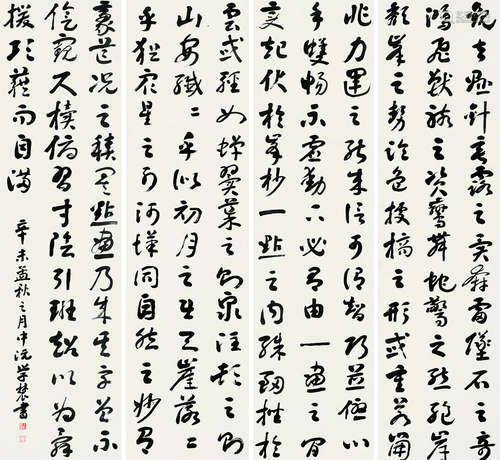 觀夫懸針垂露之異奔雷墜石之奇
鴻飛獸駭之資鸞舞蛇驚之態絕岸
頹峯之勢臨危據槁之形或重若崩
非力運之能成信可謂智巧兼優心
手雙暢不虛動下必有由一畫之間
變起伏於峯杪一點之內殊衄挫於
雲或輕如蟬翼導之則泉注頓之則
山安纖纖乎似初月之出天崖落落
乎猶眾星之列河漢同自然之妙有
毫芒況之積其點畫乃成其字曾不
傍窺尺牘俯習寸陰引班超以為辭
援項藉而自滿
辛未孟秋之月中浣學書